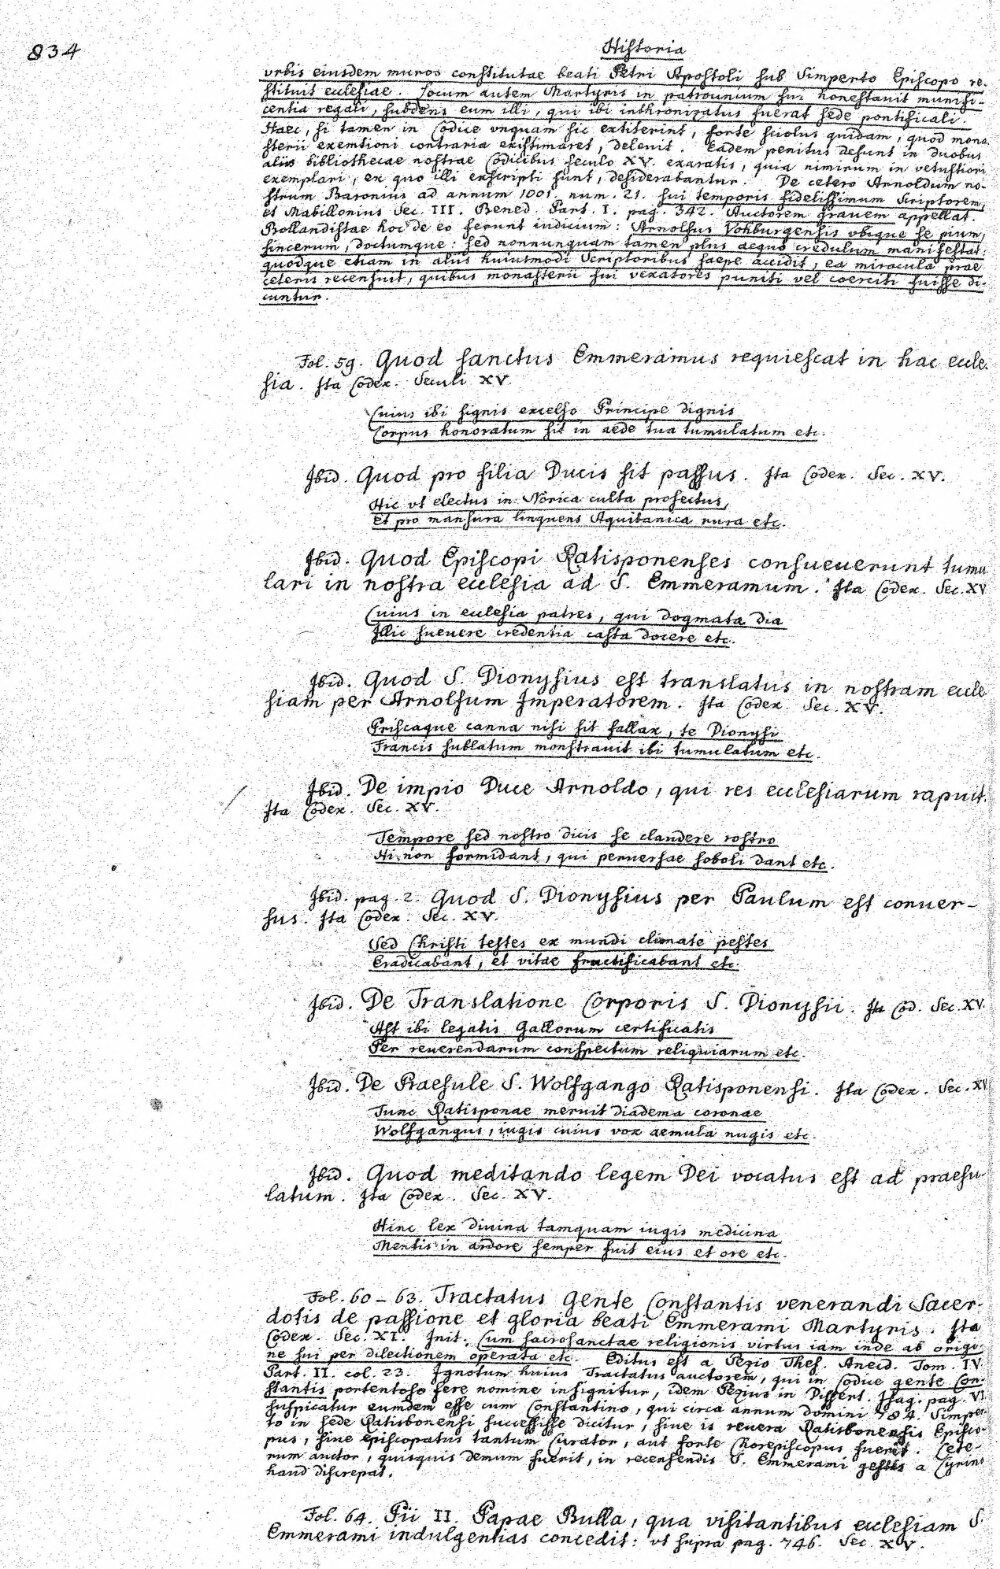 834
Historia
vrbis eiusdem muros constitutae beati Petri Apostoli sub Simperto Episcopo re-
stituit ecclesiae. Locum autem Martyris in patronnium sui honestauit munifi-
centia regali, subdens eum illi, qui ibi inthronizatus fuerat sede pontificali.
Haec, si tamen in Codice vnquam sic extiterint, forte sciolus quidam, quod mona-
sterii exemtioni contraria existimaret, deleuit. Eadem penitus desunt in duobus
aliis bibliothecae nostrae Codicibus seculo XV. exaratis, quia nimirum in vetustiori
exemplari, ex quo illi exscripti sunt, desiderabantur. De cetero Arnoldum no-
strum Baronius ad annum 1001. num. 21. sui temporis fidelissimum Scriptorem,
et Mabillonius Sec. III. Bened. Part. I. pag. 342. Auctorem grauem appellat.
Bollandistae hoc de eo ferunt iudicium: Arnolfus Vohburgensis vbique se pium,
sincerum, doctumque: sed nonnunquam tamen plus aequo credulum manifestat:
quodque etiam in aliis huiusmodi Scriptoribus saepe accidit, ea miracula prae
ceteris recensuit, quibus monasterii sui vexatores puniti vel coerciti fuisse di-
cuntur.
Fol. 59. Quod sanctus Emmeramus requiescat in hac eccle-
sia. Ita Codex. Seculi XV.
Cuius ibi signis excelso Principe dignis
Corpus honoratum sit in aede tua tumulatum etc.
Ibid. Quod pro filia Ducis sit passus. Ita Codex. Sec. XV.
Hic vt electus in Norica culta profectus,
Et pro mansura linquens Aquitanica rura etc.
Ibid. Quod Episcopi Ratisponenses consueuerunt tumu
lari in nostra ecclesia ad S. Emmeramum. Ita Codex. Sec. XV
Cuius in ecclesia patres, qui dogmata dia
Illic sueuere credentia casta docere etc.
Ibid. Quod S. Dionysius est translatus in nostram eccle
siam per Arnolfum Imperatorem. Ita Codex. Sec. XV.
Priscaque canna nisi sit fallax, te Dionysi
Francis sublatum monstrauit ibi tumulatum etc.
Ibid. De impio Duce Arnoldo, qui res ecclesiarum rapuit.
Ita Codex. Sec. XV.
Tempore sed nostro dicis se claudere rostro
Hi non formidant, qui peruersae soboli dant etc.
Ibid. pag. 2. Quod S. Dionysius per Paulum est conuer-
sus. Ita Codex. Sec. XV.
Sed Christi testes ex mundi climate pestes
Eradicabant, et vitae fructificabant etc.
Ibid. De Translatione Corporis S. Dionysii. Ita Cod. Sec. XV
Ast ibi legatis Gallorum certificatis
Per reuerendarum conspectum reliquiarum etc.
Ibid. De Praesule S. Wolfgango Ratisponensi. Ita Codex. Sec. XV
Tunc Ratisponae meruit diadema coronae
Wolfgangus, iugis cuius vox aemula nugis etc.
Ibid. Quod meditando legem Dei vocatus est ad praesu-
latum. Ita Codex. Sec. XV.
Hinc lex diuina tamquam iugis medicina
Mentis in ardore semper fuit eius et ore etc.
Fol. 60 - 63. Tractatus Gente Constantis venerandi Sacer-
dotis de passione et gloria beati Emmerami Martyris. Ita
Codex. Sec. XI. Init. Cum sacrosanctae religionis virtus iam inde ab origi-
ne sui per dilectionem operata etc. Editus est a Pezio Thes. Anecd. Tom. IV.
Part. II. col. 23. Ignotum huius Tractatus auctorem, qui in Codice gente Con-
stantis portentoso fere nomine insignitur, idem Pezius in Dissert. Isag. pag. VI.
suspicatur eumdem esse cum Constantino, qui circa annum domini 784. Simper-
to in sede Ratisbonensi successisse dicitur, siue is reuera Ratisbonensis Episco-
pus, siue episcopatus tantum Curator, aut forte Chorepiscopus fuerit. Cete-
rum auctor, quisquis demum fuerit, in recensendis S. Emmerami gestis a Cyrino
haud discrepat.
Fol. 64. Pii II. Papae Bulla, qua visitantibus ecclesiam S.
Emmerami indulgentias concedit: vt supra pag. 746. Sec. XV.